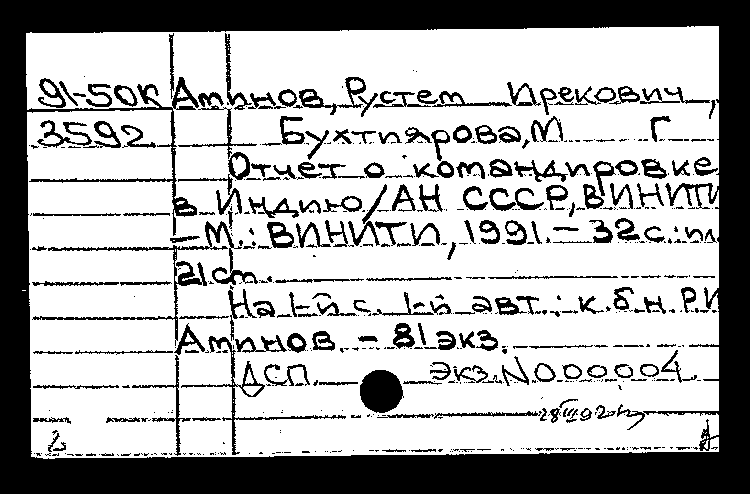 91-50К Аминов, Рустем Ирекович,
3592 Бухтиярова, М Г
Отчет о командировке
в Индию/АН СССР, ВИНИТИ
—М.: ВИНИТИ, 1991.— 32с.: ил.
21см.
На 1-й с. 1-й авт.: к.б.н. Р.И
Аминов. — 81 экз.
ДСП. Экз. N000004.
28 III 92
2